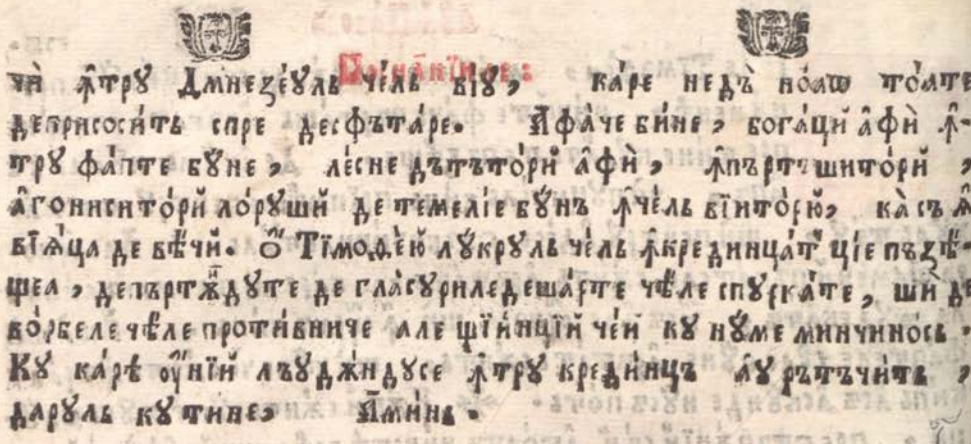 чѝ ꙟ҆трꙋ Дмнеꙁеꙋль чель вїꙋ, каре недъ ноаѡ тоате
деприсосить спре десфътаре. А҆фаче бине, богаци а҆фѝ ꙟ҆-
трꙋ фапте бꙋне, лесне дътътори а҆фѝ, ꙟ҆пърт\шитори,
а҆гониситори лорꙋши де темелїе бꙋнъ ꙟ҆чель вїиторю, касъ ꙗ҆
вїꙗца де вѣчи. Ѽ Тїмоѳею лꙋкрꙋль чель ꙟ҆крединцат цїе пъзѣ-
щеа, депъртъндꙋте де гласꙋриледешарте чѣле спꙋркате, ши де
ворбеле чѣле противниче але щїинцїй чей кꙋ нꙋме минчинось.
Кꙋ карѣ оу҆нїй лъꙋдѫндꙋсе ꙟ҆трꙋ крединцъ аꙋ рътъчить,
дарꙋль кꙋтине, А҆минь.